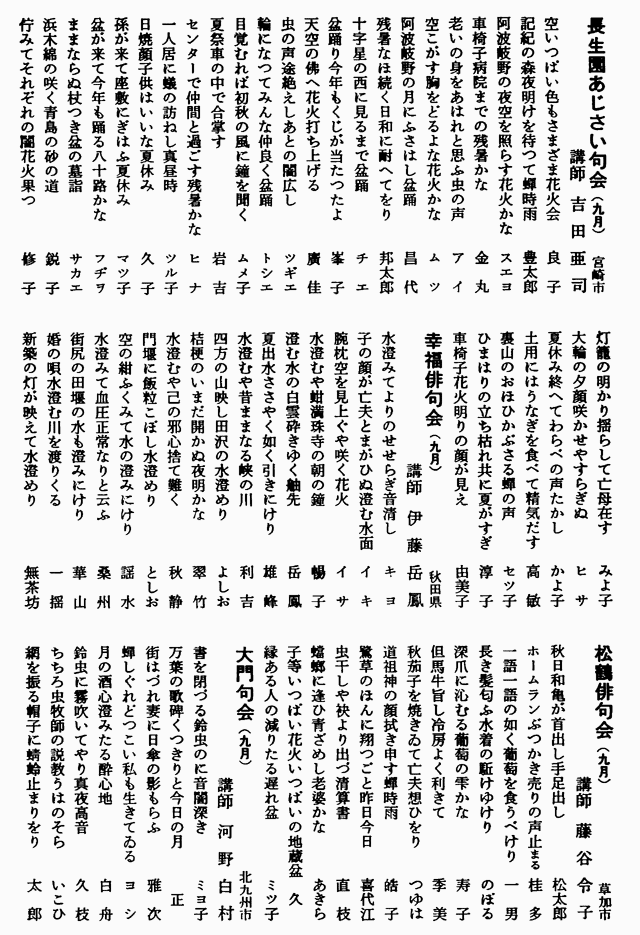 長生園あじさい句会（九月）
講師 吉田 亜司 宮崎市
空いつぱい色もさまざま花火会 良子
記紀の森夜明けを待つて蟬時雨 豊太郎
阿波岐野の夜空を照らす花火かな スエヨ
車椅子病院までの残暑かな 金丸
老いの身をあはれと思ふ虫の声 アイ
空こがす胸をどるよな花火かな ムツ
阿波岐野の月にふさはし盆踊 昌代
残暑なほ続く日和に耐へてをり 邦太郎
十字星の西に見るまで盆踊 チエ
盆踊り今年もくじが当たつたよ 峯子
天空の佛へ花火打ち上げる 廣佳
虫の声途絶えしあとの闇広し ツギエ
輪になつてみんな仲良く盆踊 トシエ
目覚むれば初秋の風に鐘を聞く ムメ子
夏祭車の中で合掌す 岩吉
センターで仲間と過ごす残暑かな ヒナ
一人居に蟻の訪ねし真昼時 ツル子
日焼顔子供はいいな夏休み 久子
孫が来て座敷にぎはふ夏休み マツ子
盆が来て今年も踊る八十路かな フヂヲ
ままならぬ杖つき盆の墓詣 サカエ
浜木綿の咲く青島の砂の道 鋭子
佇みてそれぞれの闇花火果つ 修子
灯籠の明かり揺らして亡母在す みよ子
大輪の夕顔咲かせやすらぎぬ ヒサ
夏休み終へてわらべの声たかし かよ子
土用にはうなぎを食べて精気だす 高敏
裏山のおほひかぶさる蟬の声 セツ子
ひまはりの立ち枯れ共に夏がすぎ 淳子
車椅子花火明りの顔が見え 由美子
幸福俳句会（九月）
講師 伊藤 岳鳳 秋田県
水澄みてよりのせせらぎ音清し キヨ
子の顔が亡夫とまがひぬ澄む水面 イキ
腕枕空を見上ぐや咲く花火 イサ
水澄むや蚶満珠寺の朝の鐘 暢子
澄む水の白雲砕きゆく舳先 岳鳳
夏出水ささやく如く引きにけり 雄峰
水澄むや昔ままなる峡の川 利吉
四方の山映し田沢の水澄めり よしお
桔梗のいまだ開かぬ夜明かな 翠竹
水澄むや己の邪心捨て難く 秋静
門堰に飯粒こぼし水澄めり としお
空の紺ふくみて水の澄みにけり 謡水
水澄みて血圧正常なりと云ふ 桑州
街尻の田堰の水も澄みにけり 華山
婚の唄水澄む川を渡りくる 一揺
新築の灯が映えて水澄めり 無茶坊
松鶴俳句会（九月）
講師 藤谷 令子 草加市
秋日和亀が首出し手足出し 松太郎
ホームランぶつかき売りの声止まる 桂多
一語一語の如く葡萄を食うべけり 一男
長き髪匂ふ水着の駈けゆけり のぼる
深爪に沁むる葡萄の雫かな 寿子
但馬牛旨し冷房よく利きて 季美
秋茄子を焼きゐて亡夫想ひをり つゆは
道祖神の顔拭き申す蟬時雨 皓子
鷺草のほんに翔つごと昨日今日 喜代江
虫干しや袂より出づ清算書 直枝
蟷螂に逢ひ青ざめし老婆かな あきら
子等いつぱい花火いつぱいの地蔵盆 久
縁ある人の減りたる遅れ盆 ミツ子
大門句会（九月）
講師 河野 白村 北九州市
書を閉づる鈴虫のに音闇深き ミヨ子
万葉の歌碑くつきりと今日の月 正
街はづれ妻に日傘の影もらふ 雅次
蟬しぐれどつこい私も生きてゐる ヨシ
月の酒心澄みたる酔心地 白舟
鈴虫に霧吹いてやり真夜高音 久枝
ちちろ虫牧師の説教うはのそら いこひ
網を振る帽子に蜻蛉止まりをり 太郎